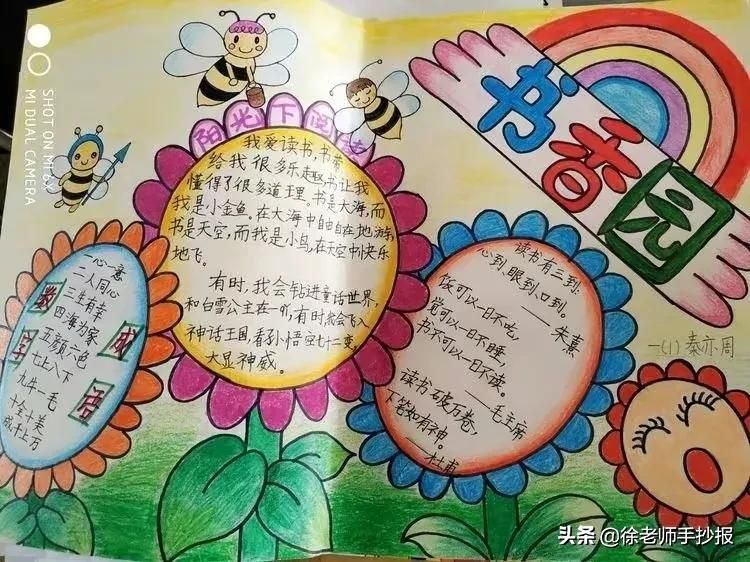 SHOT ON MI 6X
MI DUAL CAMERA
书香园
阳光下阅读
我爱读书,书带
给我很多乐趣,书让我
懂得了很多道理。书是大海,而
我是小金鱼。在大海中自由自在地游,
书是天空,而我是小鸟,在天空中快乐
地飞。
有时,我会钻进童话世界,
和白雪公主在一听,有时就会飞入
神话王国,看孙悟空七十二变,
大显神威。
数字成语
一心一意
二人同心
三生有幸
四海为家
五颜六色
七上八下
九牛一毛
十全十美
成千上万
读书有三到:
心到,眼到,口到。
——朱熹
饭可以一日不吃,
觉可以一日不睡,
书不可以一日不读。
——毛主席
读书破万卷,
下笔如有神。
——杜甫
一(1) 秦亦周
头条 @徐老师手抄报